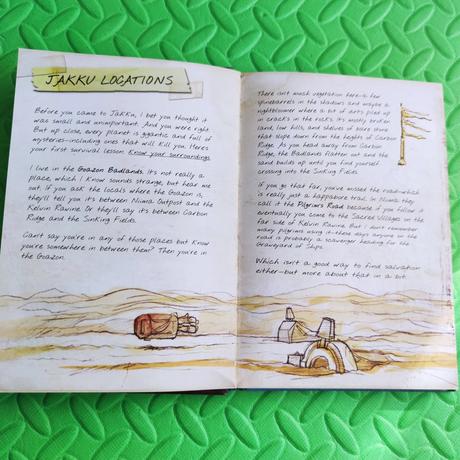 JAKKU LOCATIONS
Before you came to Jakku, I bet you thought it
was small and unimportant. And you were right.
But up close, every planet is gigantic and full of
mysteries—including ones that will kill you. Here's
your first survival lesson: Know your surroundings.
I live in the Goazon Badlands. It's not really a
place, which I know sounds strange, but hear me
out. If you ask the locals where the Goazon is,
they'll tell you it's between Niima Outpost and the
Kelvin Ravine. Or they'll say it's between Carbon
Ridge and the Sinking Fields.
Can't say you're in any of those places but know
you're somewhere in between them? Then you're in
the Goazon.
There isn't much vegetation here—a few
spinebarrels in the shadows and maybe a
nightbloomer where a bit of dirt's piled up
in cracks in the rocks. It's mostly broken
land, low hills, and shelves of bare stone
that slope down from the heights of Carbon
Ridge. As you head away from Carbon
Ridge, the Badlands flatten out and the
sand builds up until you find yourself
crossing into the Sinking Fields.
If you go that far, you've missed the road—which
is really just a happabore trail. In Niima, they
call it the Pilgrim's Road because if you follow it
eventually you come to the Sacred Villages on the
far side of Kelvin Ravine. But I don't remember
many pilgrims using it—these days anyone on the
road is probably a scavenger heading for the
Graveyard of Ships.
Which isn't a good way to find salvation
either—but more about that in a bit.